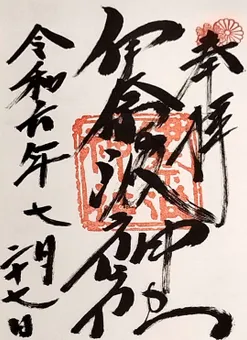 奉拝
伊奈波神社
令和六年七月二十七日